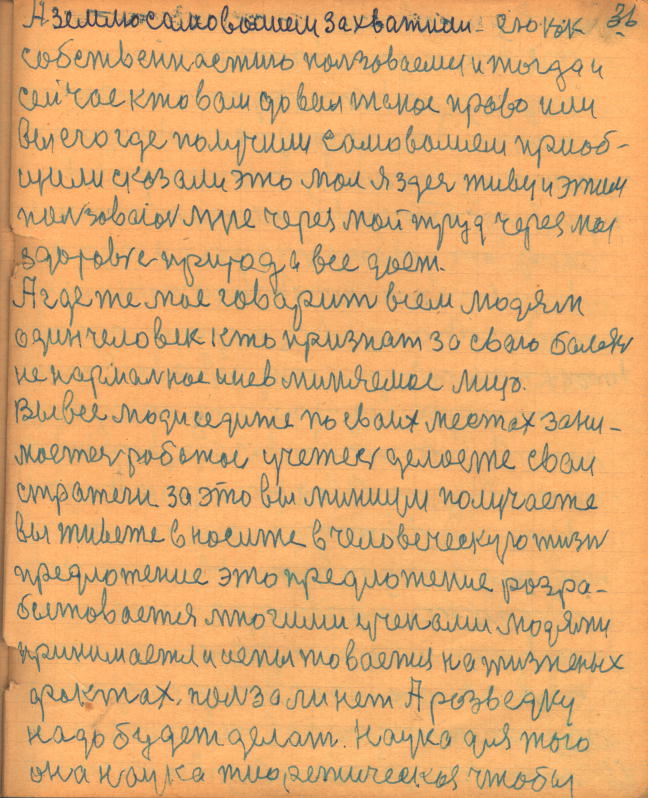 36
А землю самоволием захватили - ею как
собственностию ползоваемы и тогда и
сейчас кто вам довал такое право или
вы его где получили самоволием приоб-
щили сказали это мая я здея живу и этим
ползоваюс мне через мой труд через мае
здоровье природ а все дает.
А где же мае говарит всем людям
один человек кто признат за сваю балезн
не нармалное и невминяемое лицо.
Вы все люди седите по своих местах зани-
маетея работои учетес делаете сваи
стратеги за это вы миниум получаете
вы живете вносите в человеческую жизн
предложение это предложение розра-
бытовается многими ученами людями
принимается и испытовается на жизненых
фактах, полза ли нет А розведку
надо будет делат. Наука для того
она наука тиоретическоя чтобы